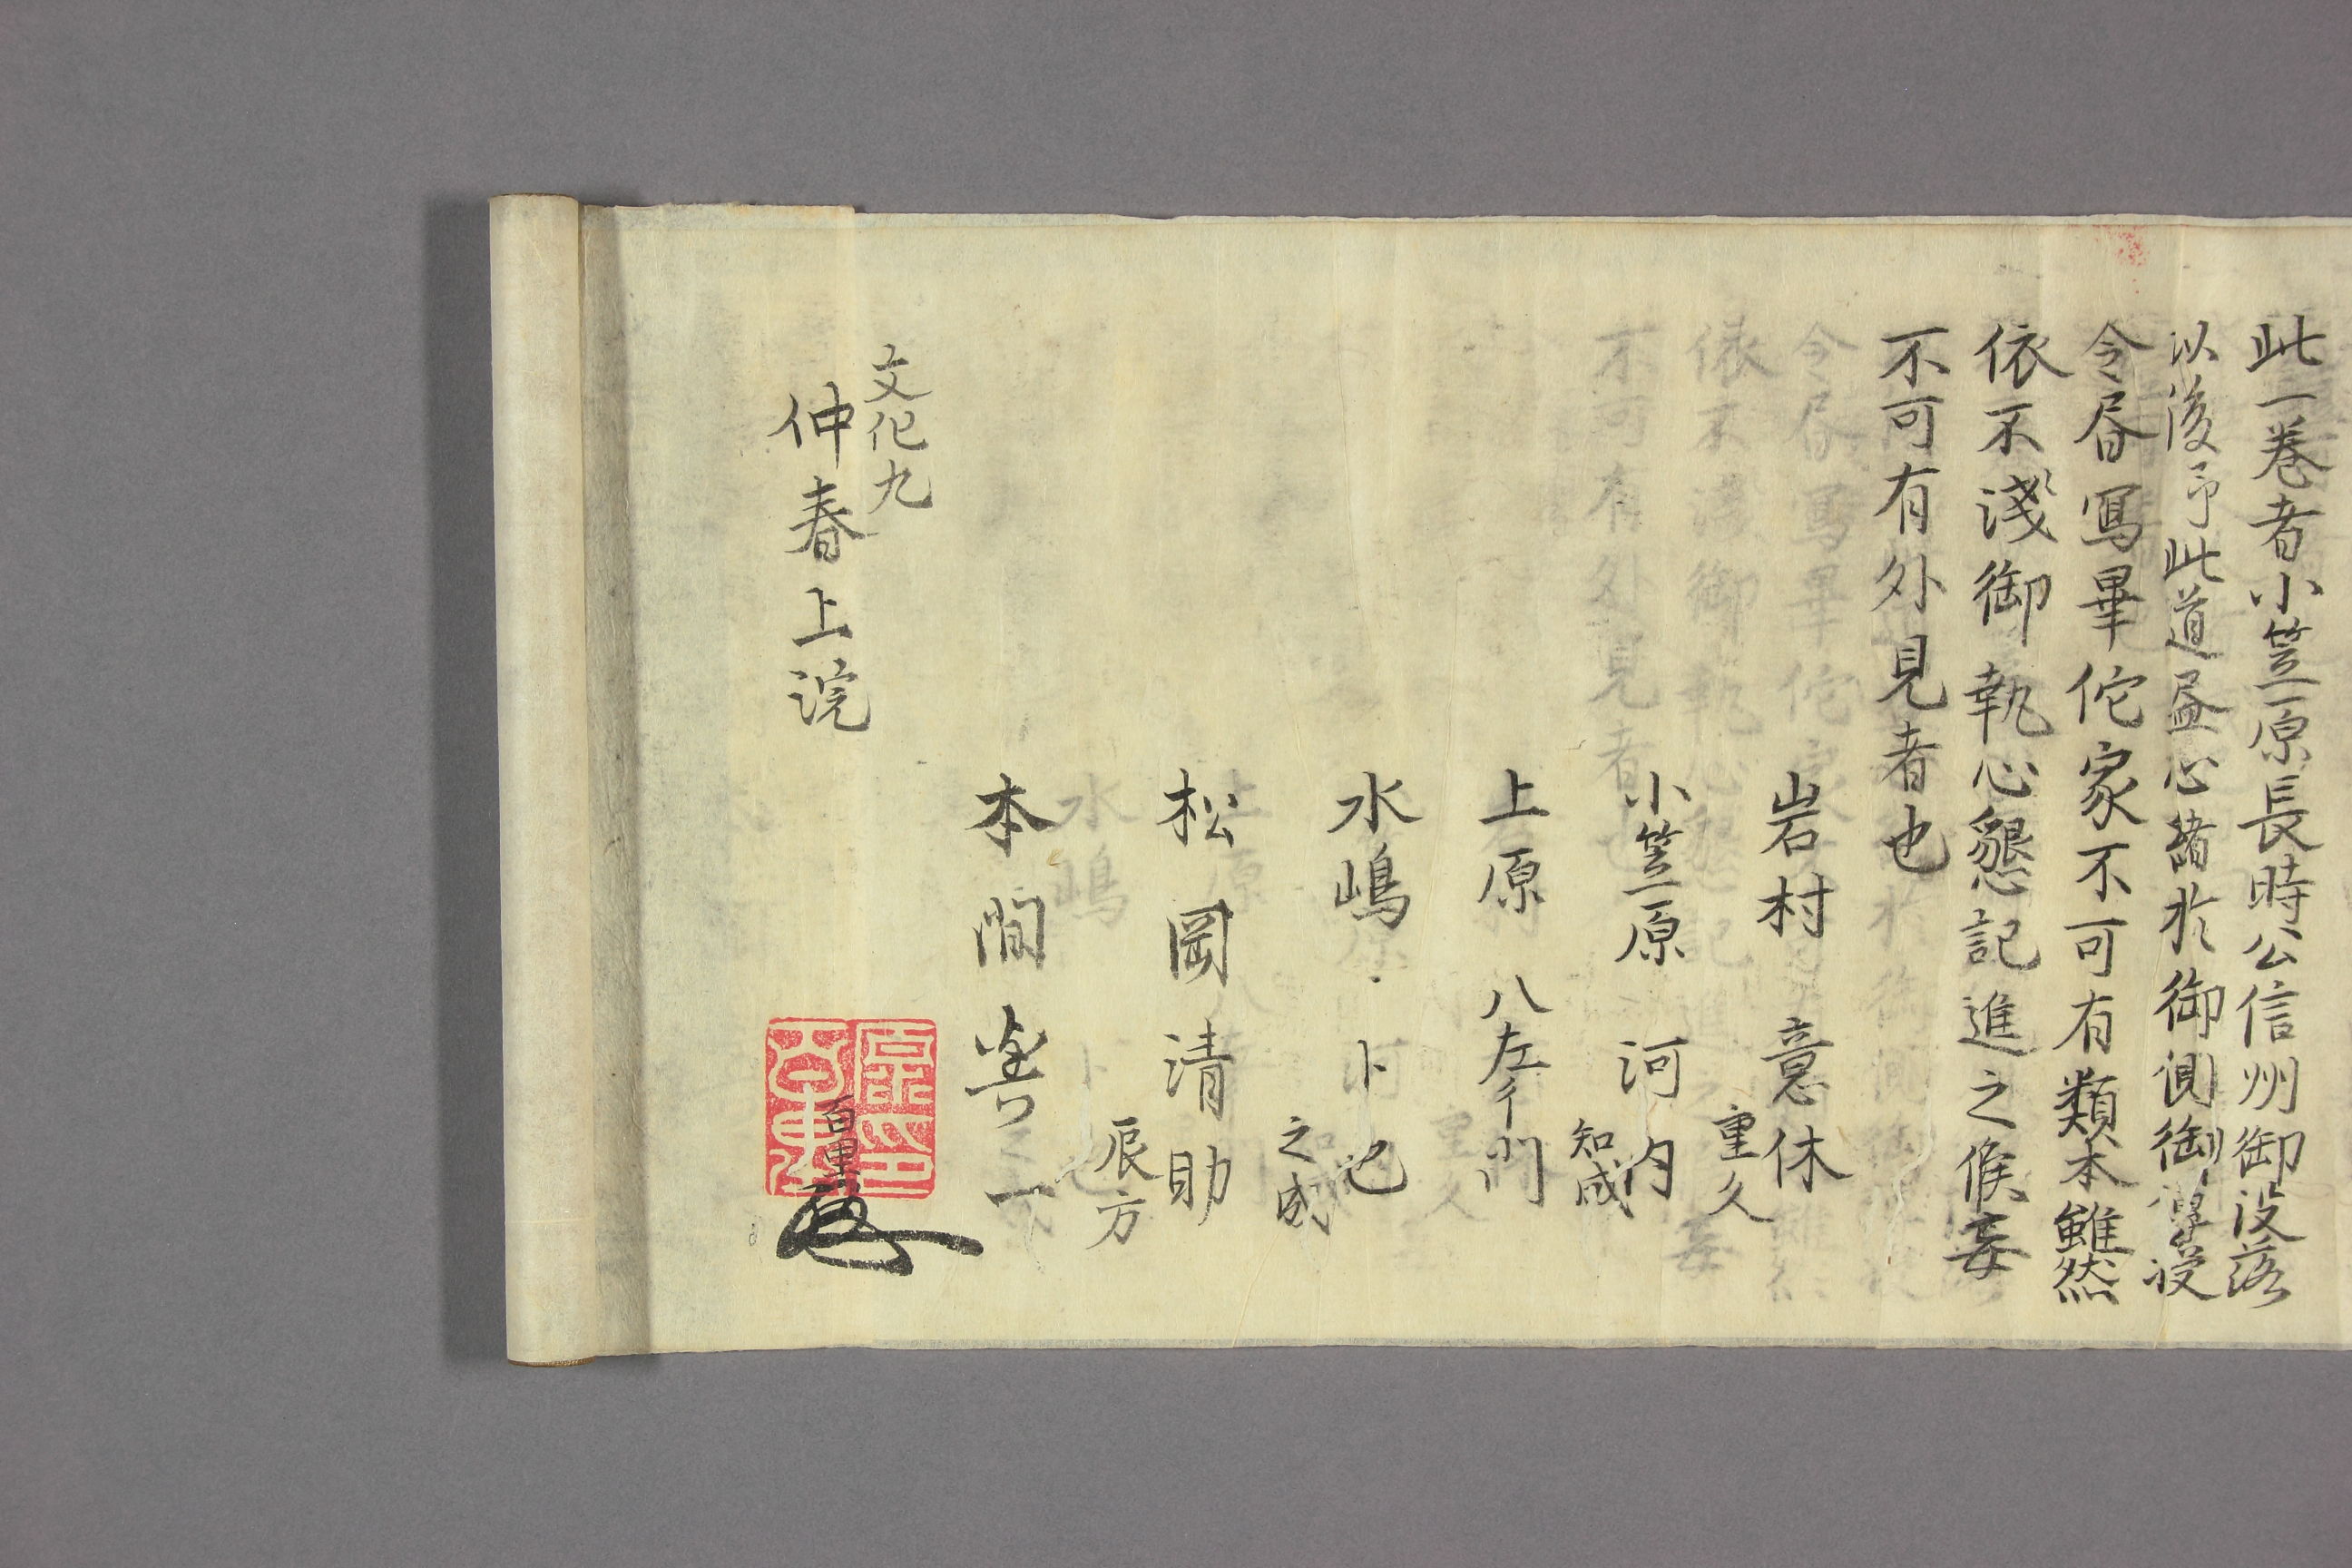 此一巻者小笠原長時公信州御没落
以後予此道盡心緒於御側御
令昼寫畢佗家不可有類本雖然
依不淺御執心懇記進之候妄
不可有外見者也
岩村意休
重久
小笠原河内
知成
上原八左衛門
水嶋卜也
之成
松岡清助
辰方
本間
文化九
仲春上浣
百里